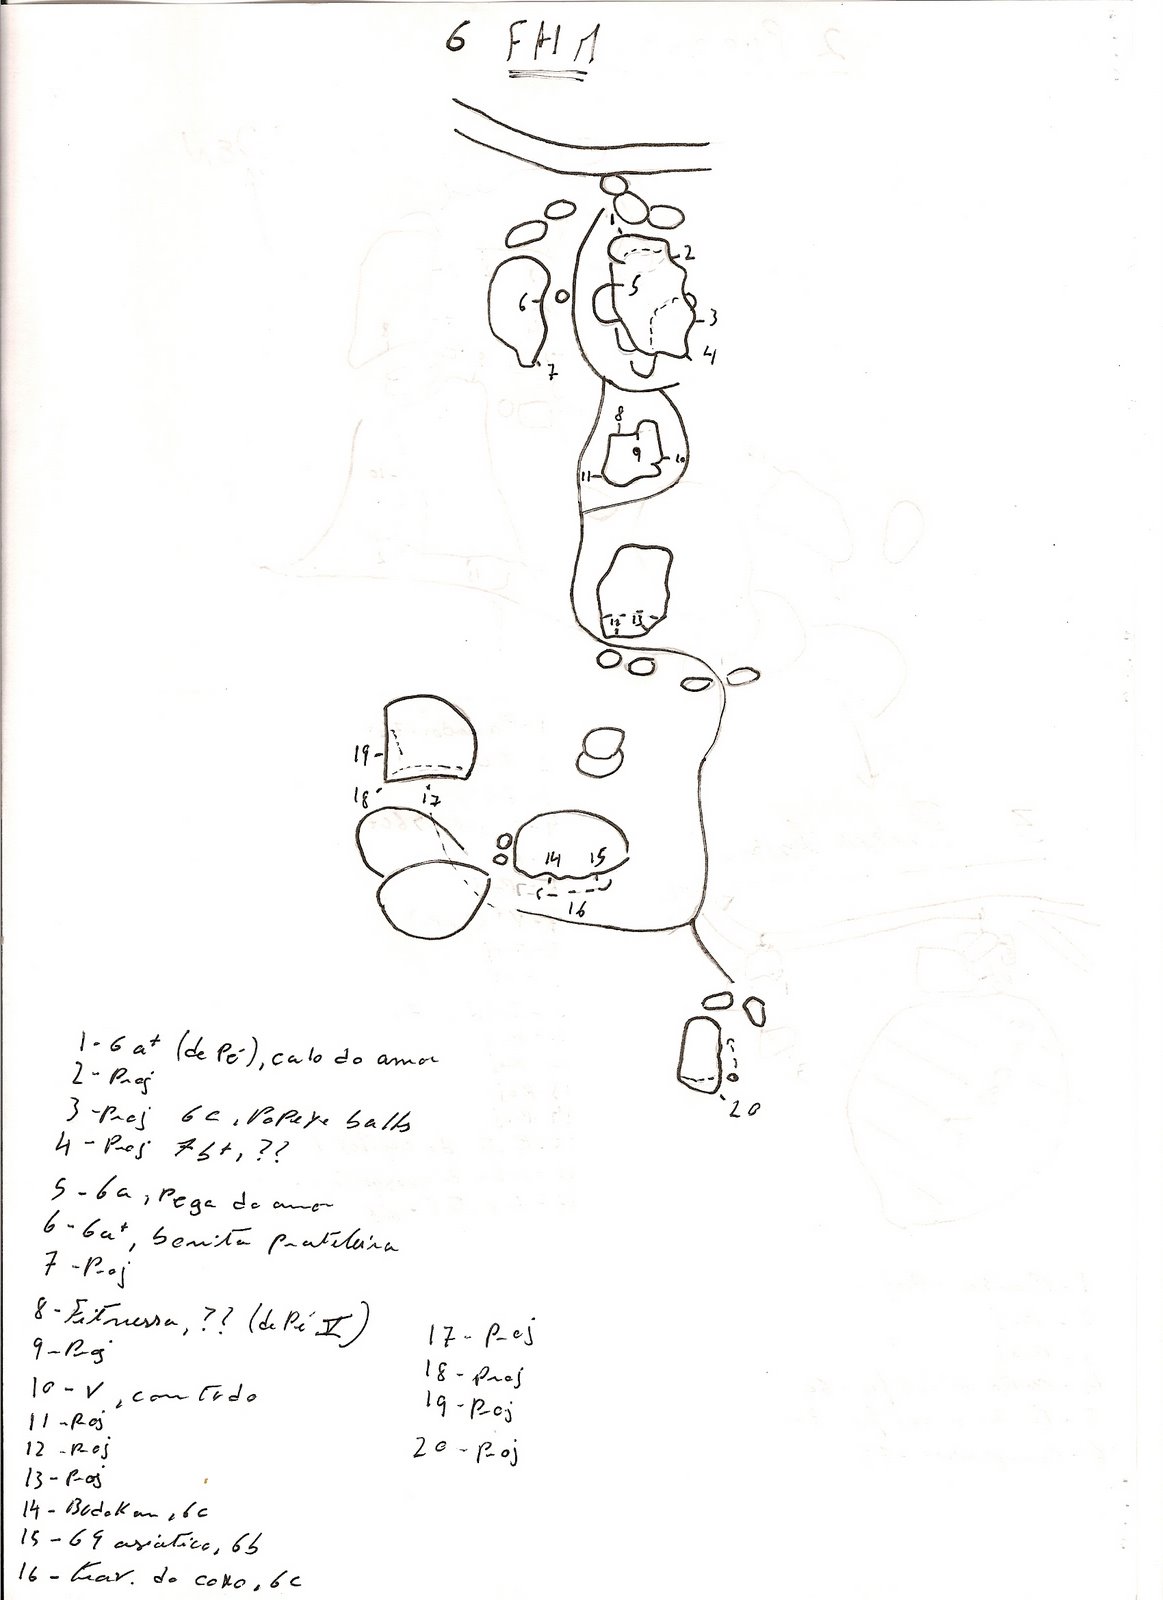 6 FHM
2
5
6
3
4
7
8
9
10
11
12 13
19
18
17
14 15
16
20
1 - 6a+ (de Pé), calo do amor
2 - Proj
3 - Proj 6c, Popeye balls
4 - Proj 7b+, ??
5 - 6a, Pega do amor
6 - 6a+, bonita prateleira
7 - Proj
8 - Fitnessa, ?? (de Pé V)
9 - Proj
10 - V, com tudo
11 - Proj
12 - Proj
13 - Proj
14 - Budokan, 6c
15 - 69 asiatico, 6b
16 - trav. do 6c
17 - Proj
18 - Proj
19 - Proj
20 - Proj